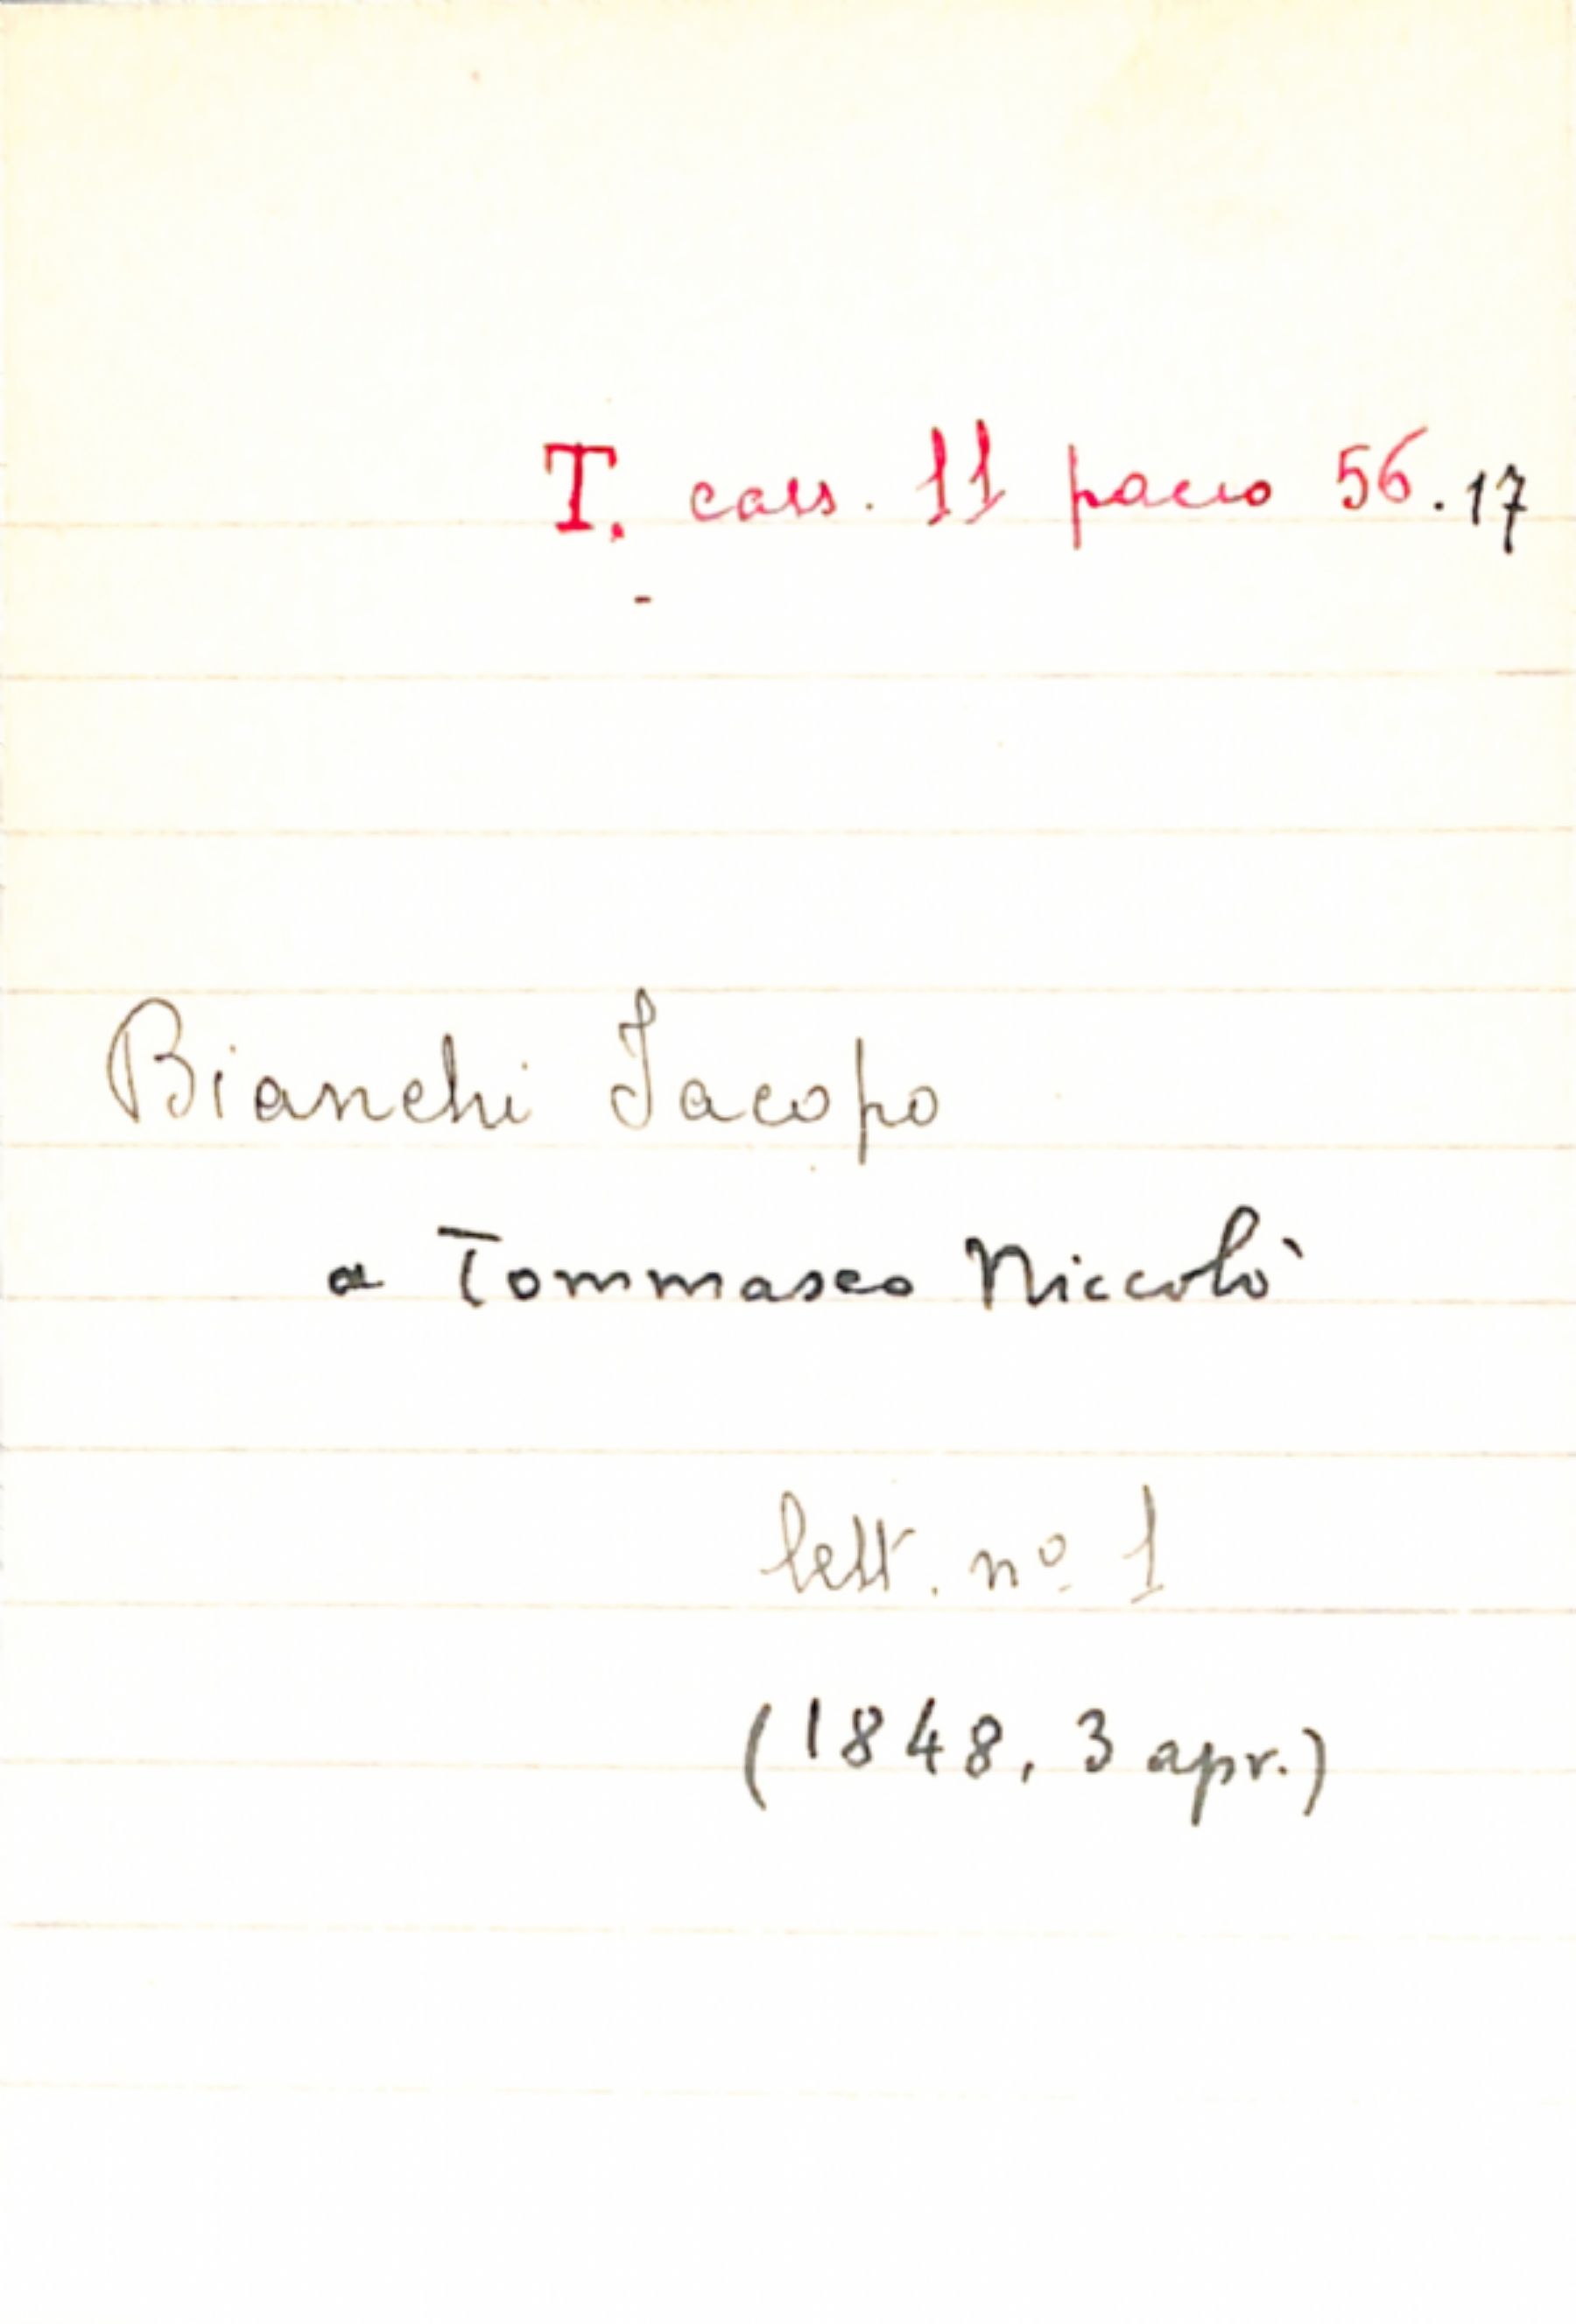 T. cass. 11 pacco 56.17
Bianchi Jacopo
a Tommaseo Niccolò
lett. nº 1
(1848, 3 apr.)